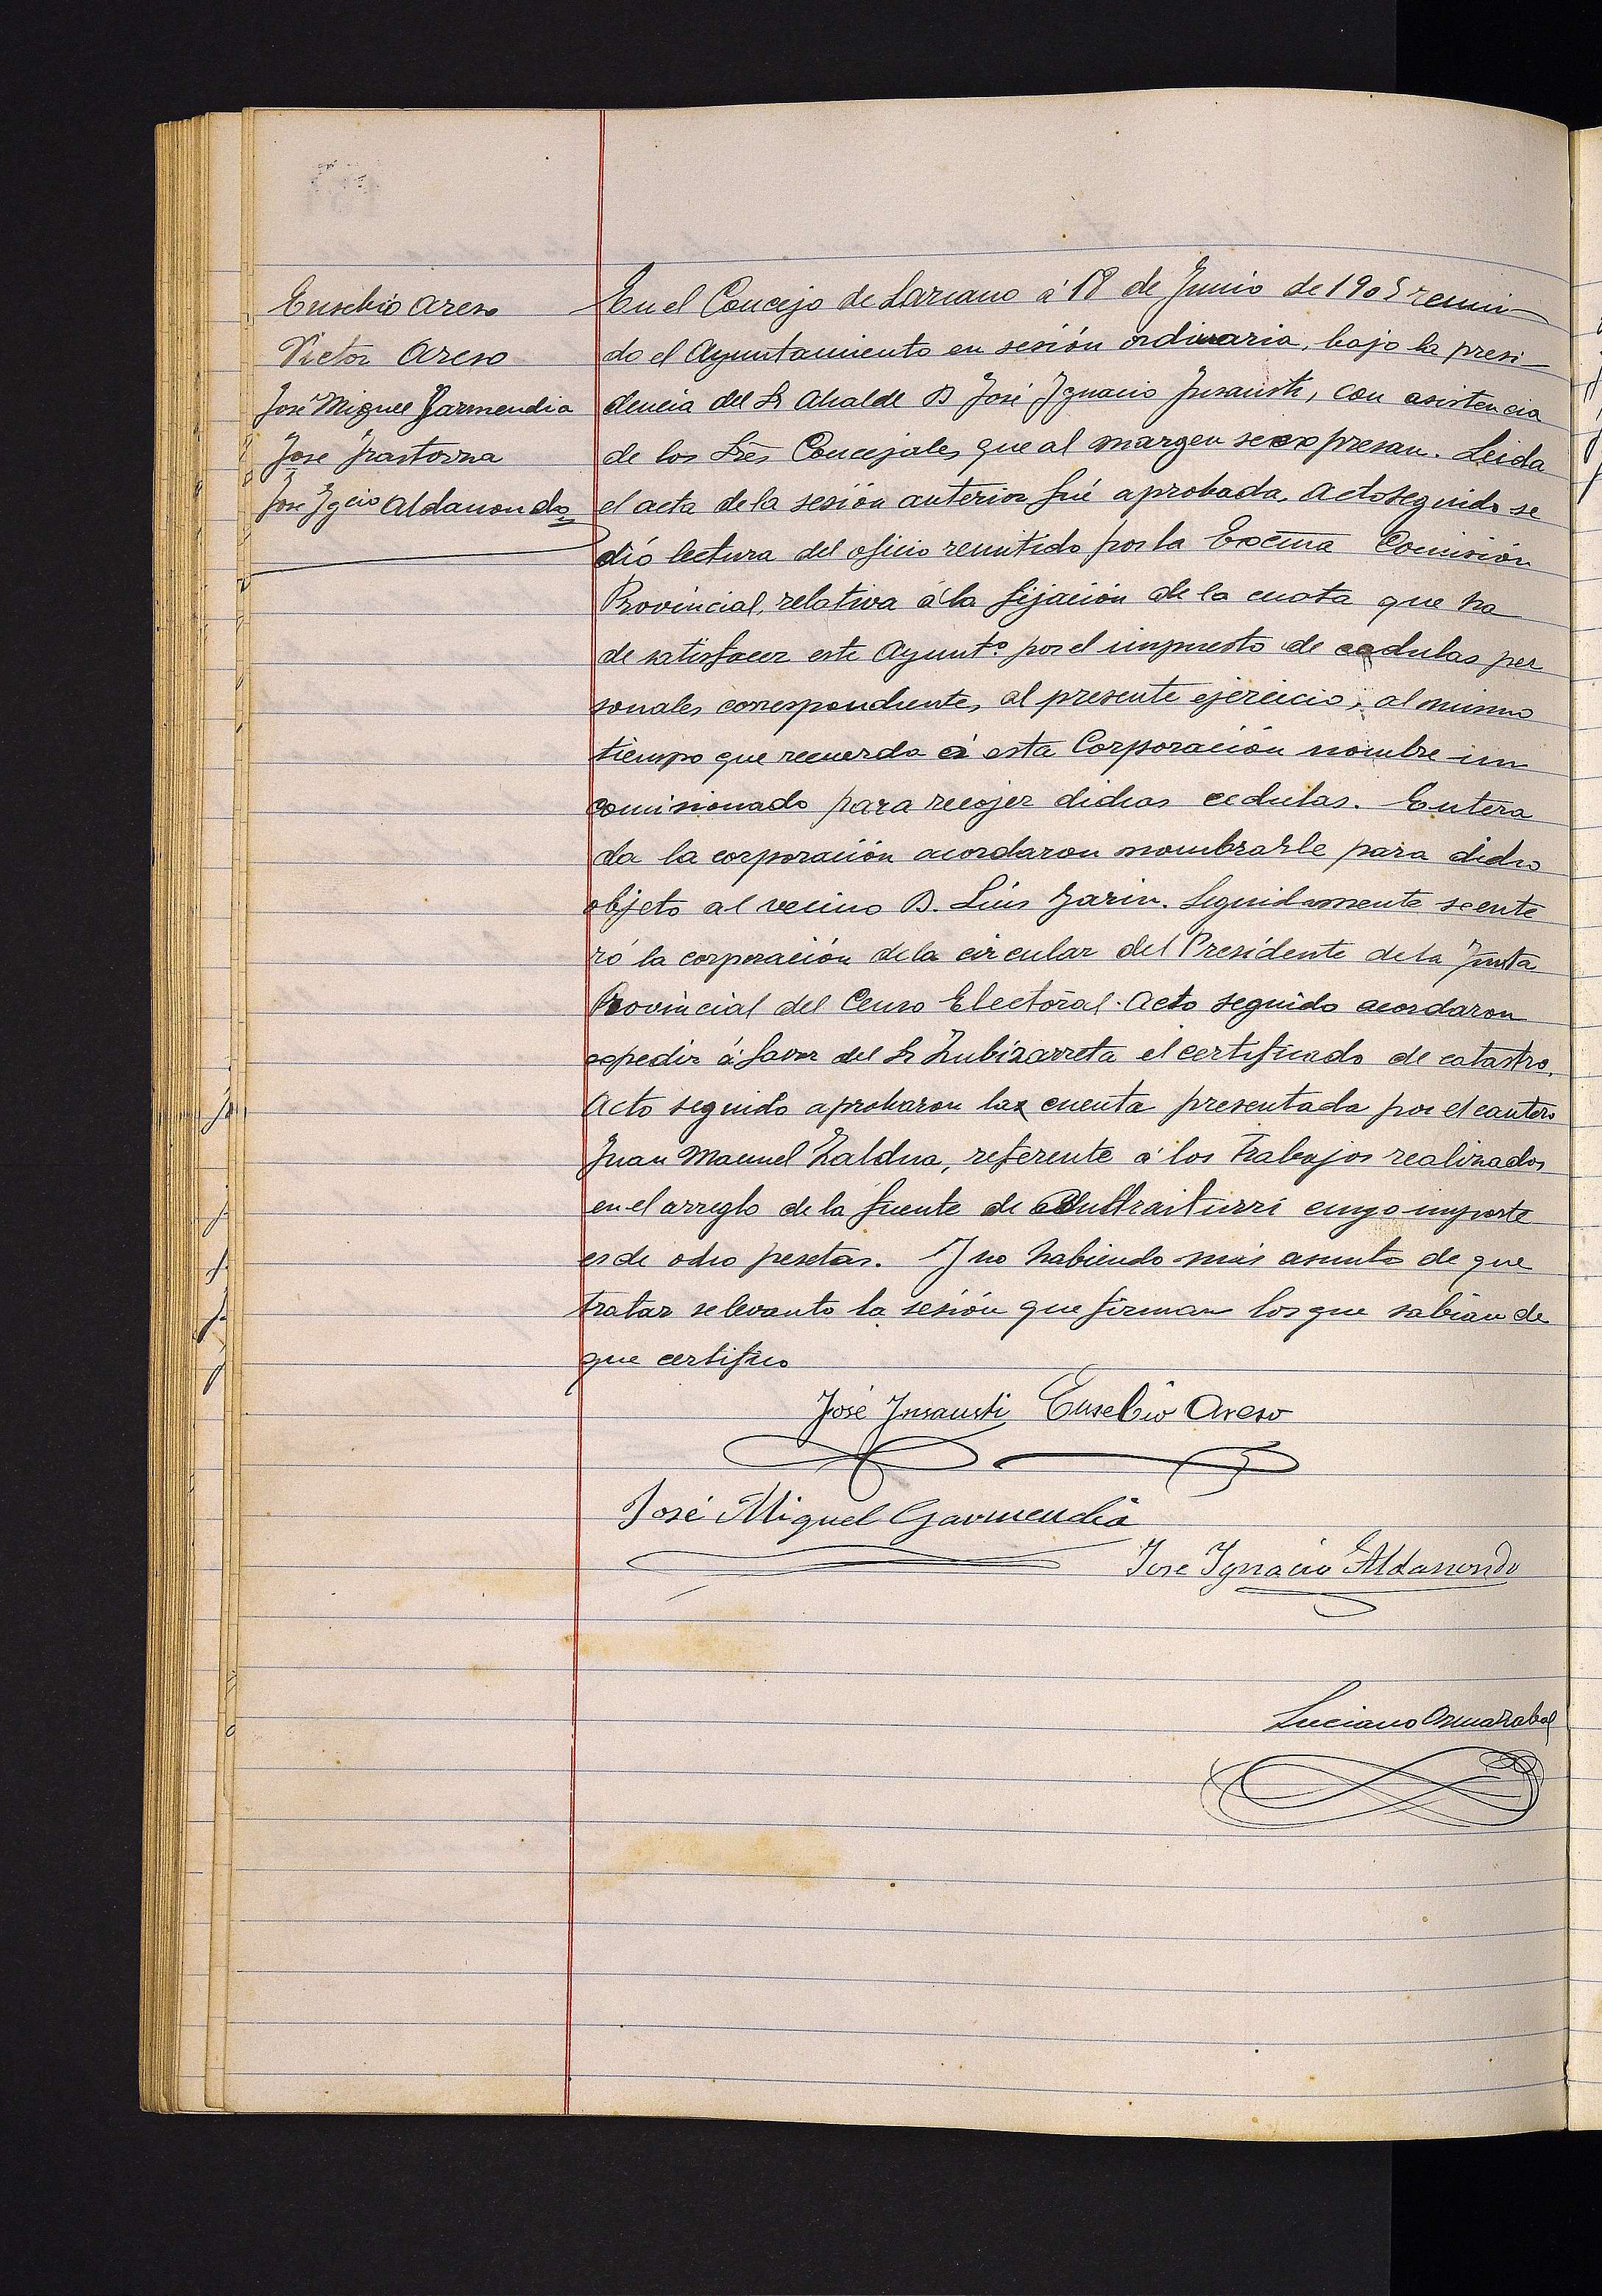 Eusebio Areso
Victor Areso
José Miguel Garmendia
José Irastorza
José Ygcio Aldanondo
En el Concejo de Lazcano á 18 de Junio de 1905 reuni
do el Ayuntamiento en sesión ordinaria, bajo la presi
dencia del Sr Alcalde D José Ygnacio Insausti, con asistencia
de los Sres Concejales que al margen se expresan. Leida
el acta de la sesión anterior fué aprobada. Acto seguido se
dió lectura del oficio remitido por la Excma Comisión
Provincial, relativa á la fijación de la cuota que ha
de satisfacer este Ayuntº por el impuesto de cedulas per
sonales correspondiente, al presente ejercicio, al mismo
tiempo que recuerda á esta Corporación nombre un
comisionado para recojer dichas cedulas. Entera
da la corporación acordaron nombrarle para dicho
objeto al vecino D. Luis Zarin. Seguidamente se ente
ró la corporación de la circular del Presidente de la Junta
Provincial del Censo Electoral. Acto seguido acordaron
expedir á favor del Sr Zubizarreta el certificado de catastro.
Acto seguido aprobaron la cuenta presentada por el cantero
Juan Manuel Zaldua, referente á los trabajos realizados
en el arreglo de la fuente de cuyo importe
es de ocho pesetas. Y no habiendo más asunto de que
tratar se levanto la sesión que firman los que sabian de
que certifico
José Insausti Eusebio Areso
José Miguel Garmendia
José Ygnacio Aldanondo
Luciano